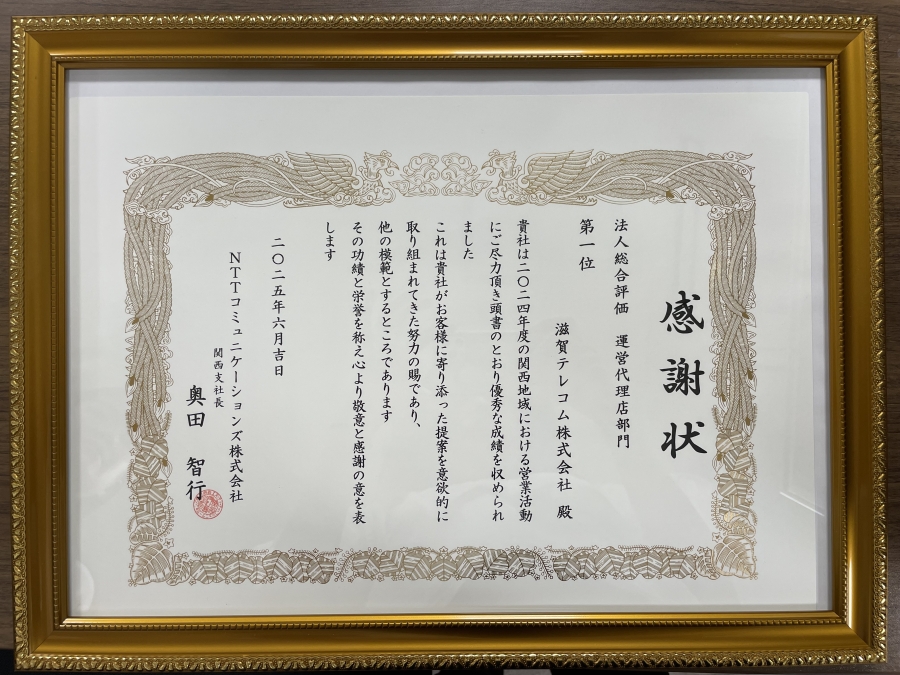 感謝状
法人総合評価　運営代理店部門
第一位
滋賀テレコム株式会社　殿
貴社は二〇二四年度の関西地域における営業活動
にご尽力頂き頭書のとおり優秀な成績を収められ
ました
これは貴社がお客様に寄り添った提案を意欲的に
取り組まれてきた努力の賜であり、
他の模範とするところであります
その功績と栄誉を称え心より敬意と感謝の意を表
します
二〇二五年六月吉日
NTTコミュニケーションズ株式会社
関西支社長
奥田　智行